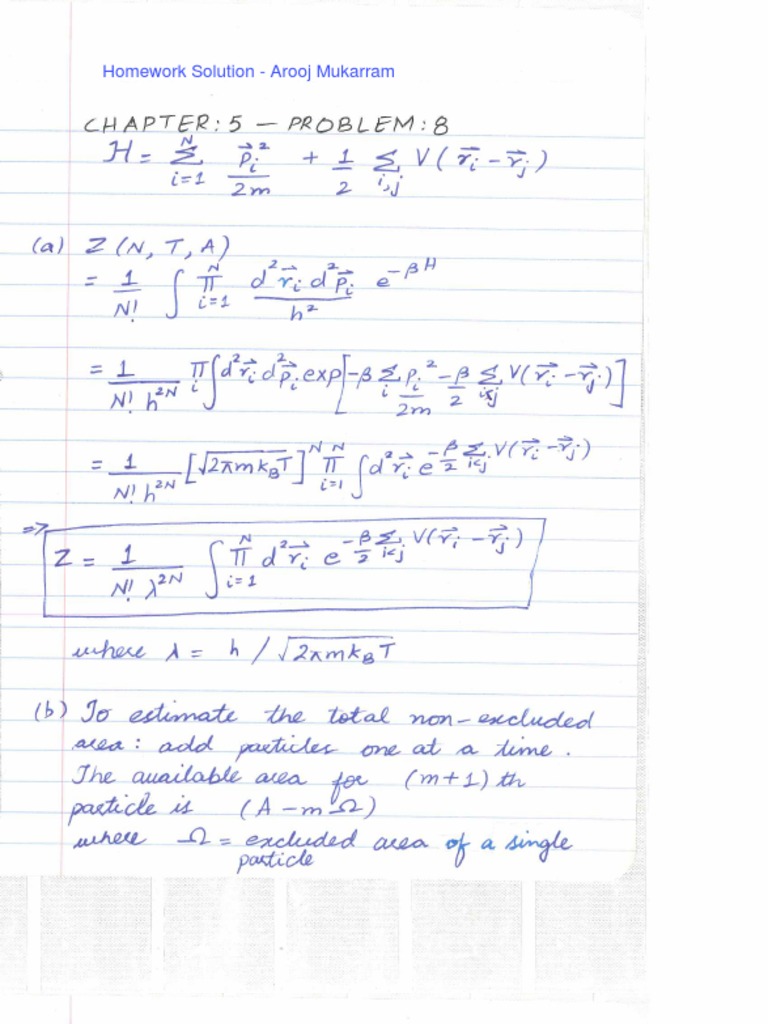 Homework Solution - Arooj Mukarram
CHAPTER: 5 — PROBLEM: 8
H = Σ_{i=1}^{N} p⃗_i²/2m + 1/2 Σ_{i,j} V(r⃗_i - r⃗_j)
(a) Z(N, T, A)
= 1/N! ∫ Π_{i=1}^{N} d²r⃗_i d²p⃗_i/h² e^{-βH}
= 1/(N! h^{2N}) Π_i ∫ d²r⃗_i d²p⃗_i exp[-β Σ_i p_i²/2m - β/2 Σ_{i<j} V(r⃗_i - r⃗_j)]
= 1/(N! h^{2N}) [√(2πmk_BT)]^N Π_{i=1}^{N} ∫ d²r⃗_i e^{-β/2 Σ_{i<j} V(r⃗_i - r⃗_j)}
=> Z = 1/(N! λ^{2N}) ∫ Π_{i=1}^{N} d²r⃗_i e^{-β/2 Σ_{i<j} V(r⃗_i - r⃗_j)}
where λ = h / √(2πmk_BT)
(b) To estimate the total non-excluded
area: add particles one at a time.
The available area for (m+1)th
particle is (A - mΩ)
where Ω = excluded area of a single
particle